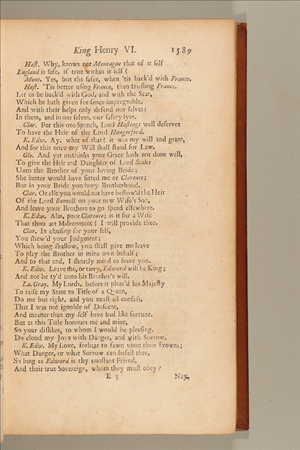 King Henry VI. 1589
Hast. Why, knows not Montague that of it self
England is safe, if true within it self?
Mont. Yes, but the safer, when 'tis back'd with France.
Hast. 'Tis better using France, than trusting France.
Let us be back'd with God, and with the Seas,
Which he hath given for fence impregnable,
And with their helps only defend our selves:
In them, and in our selves, our safety lyes.
Clar. For this one Speech, Lord Hastings well deserves
To have the Heir of the Lord Hungerford.
K. Edw. Ay, what of that? it was my will and grant,
And for this once my Will shall stand for Law.
Glo. And yet methinks your Grace hath not done well,
To give the Heir and Daughter of Lord Scales
Unto the Brother of your loving Bride;
She better would have fitted me or Clarence;
But in your Bride you bury Brotherhood.
Clar. Or else you would not have bestow'd the Heir
Of the Lord Bonvill on your new Wife's Son,
And leave your Brothers to go speed elsewhere.
K. Edw. Alas, poor Clarence; is it for a Wife
That thou art Malecontent? I will provide thee.
Clar. In chusing for your self,
You shew'd your Judgment;
Which being shallow, you shall give me leave
To play the Broker in mine own behalf;
And to that end, I shortly mind to leave you.
K. Edw. Leave me, or tarry, Edward will be King;
And not be ty'd unto his Brother's will.
La. Gray. My Lords, before it pleas'd his Majesty
To raise my State to Title of a Queen,
Do me but right, and you must all confess,
That I was not ignoble of Descent,
And meaner than my self have had like fortune.
But as this Title honours me and mine,
So your dislikes, to whom I would be pleasing,
Do cloud my Joys with Danger, and with Sorrow.
K. Edw. My Love, forbear to fawn upon their Frowns;
What Danger, or what Sorrow can befall thee,
So long as Edward is thy constant Friend,
And their true Sovereign, whom they must obey?
E 3 Nay,